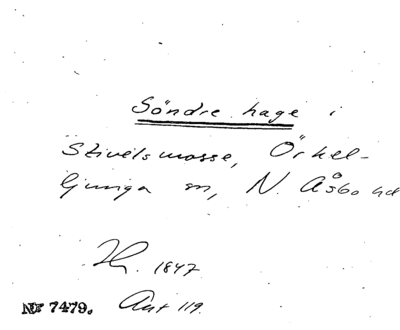 Söndre hage i
Stivelsmosse, Örkel-
ljunga sn, N. Åsbo hd
1847
Nr 7479. Akt 119.